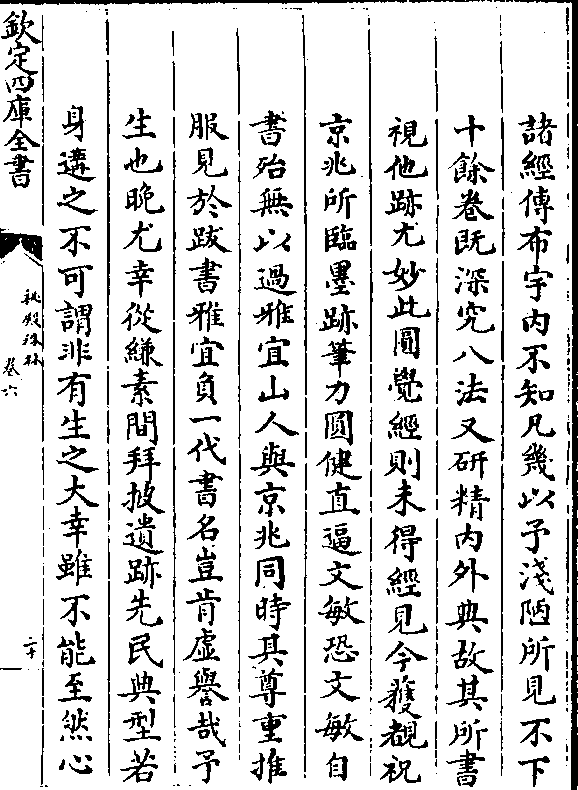 諸經傳布宇内不知凡幾以予淺陋所見不下
十餘卷既深究八法又研精内外典故其所書
視他跡尤妙此圓覺經則未得經見今獲覩祝
京兆所臨墨跡筆力圓健直逼文敏恐文敏自
書殆無以過雅宜山人與京兆同時其尊重推
服見於跋書雅宜負一代書名豈肯虛譽哉予
生也晚尤幸從縑素間拜披遺跡先民典型若
身遘之不可謂非有生之大幸雖不能至然心
欽定四庫全書
祕殿珠林
卷六
二十